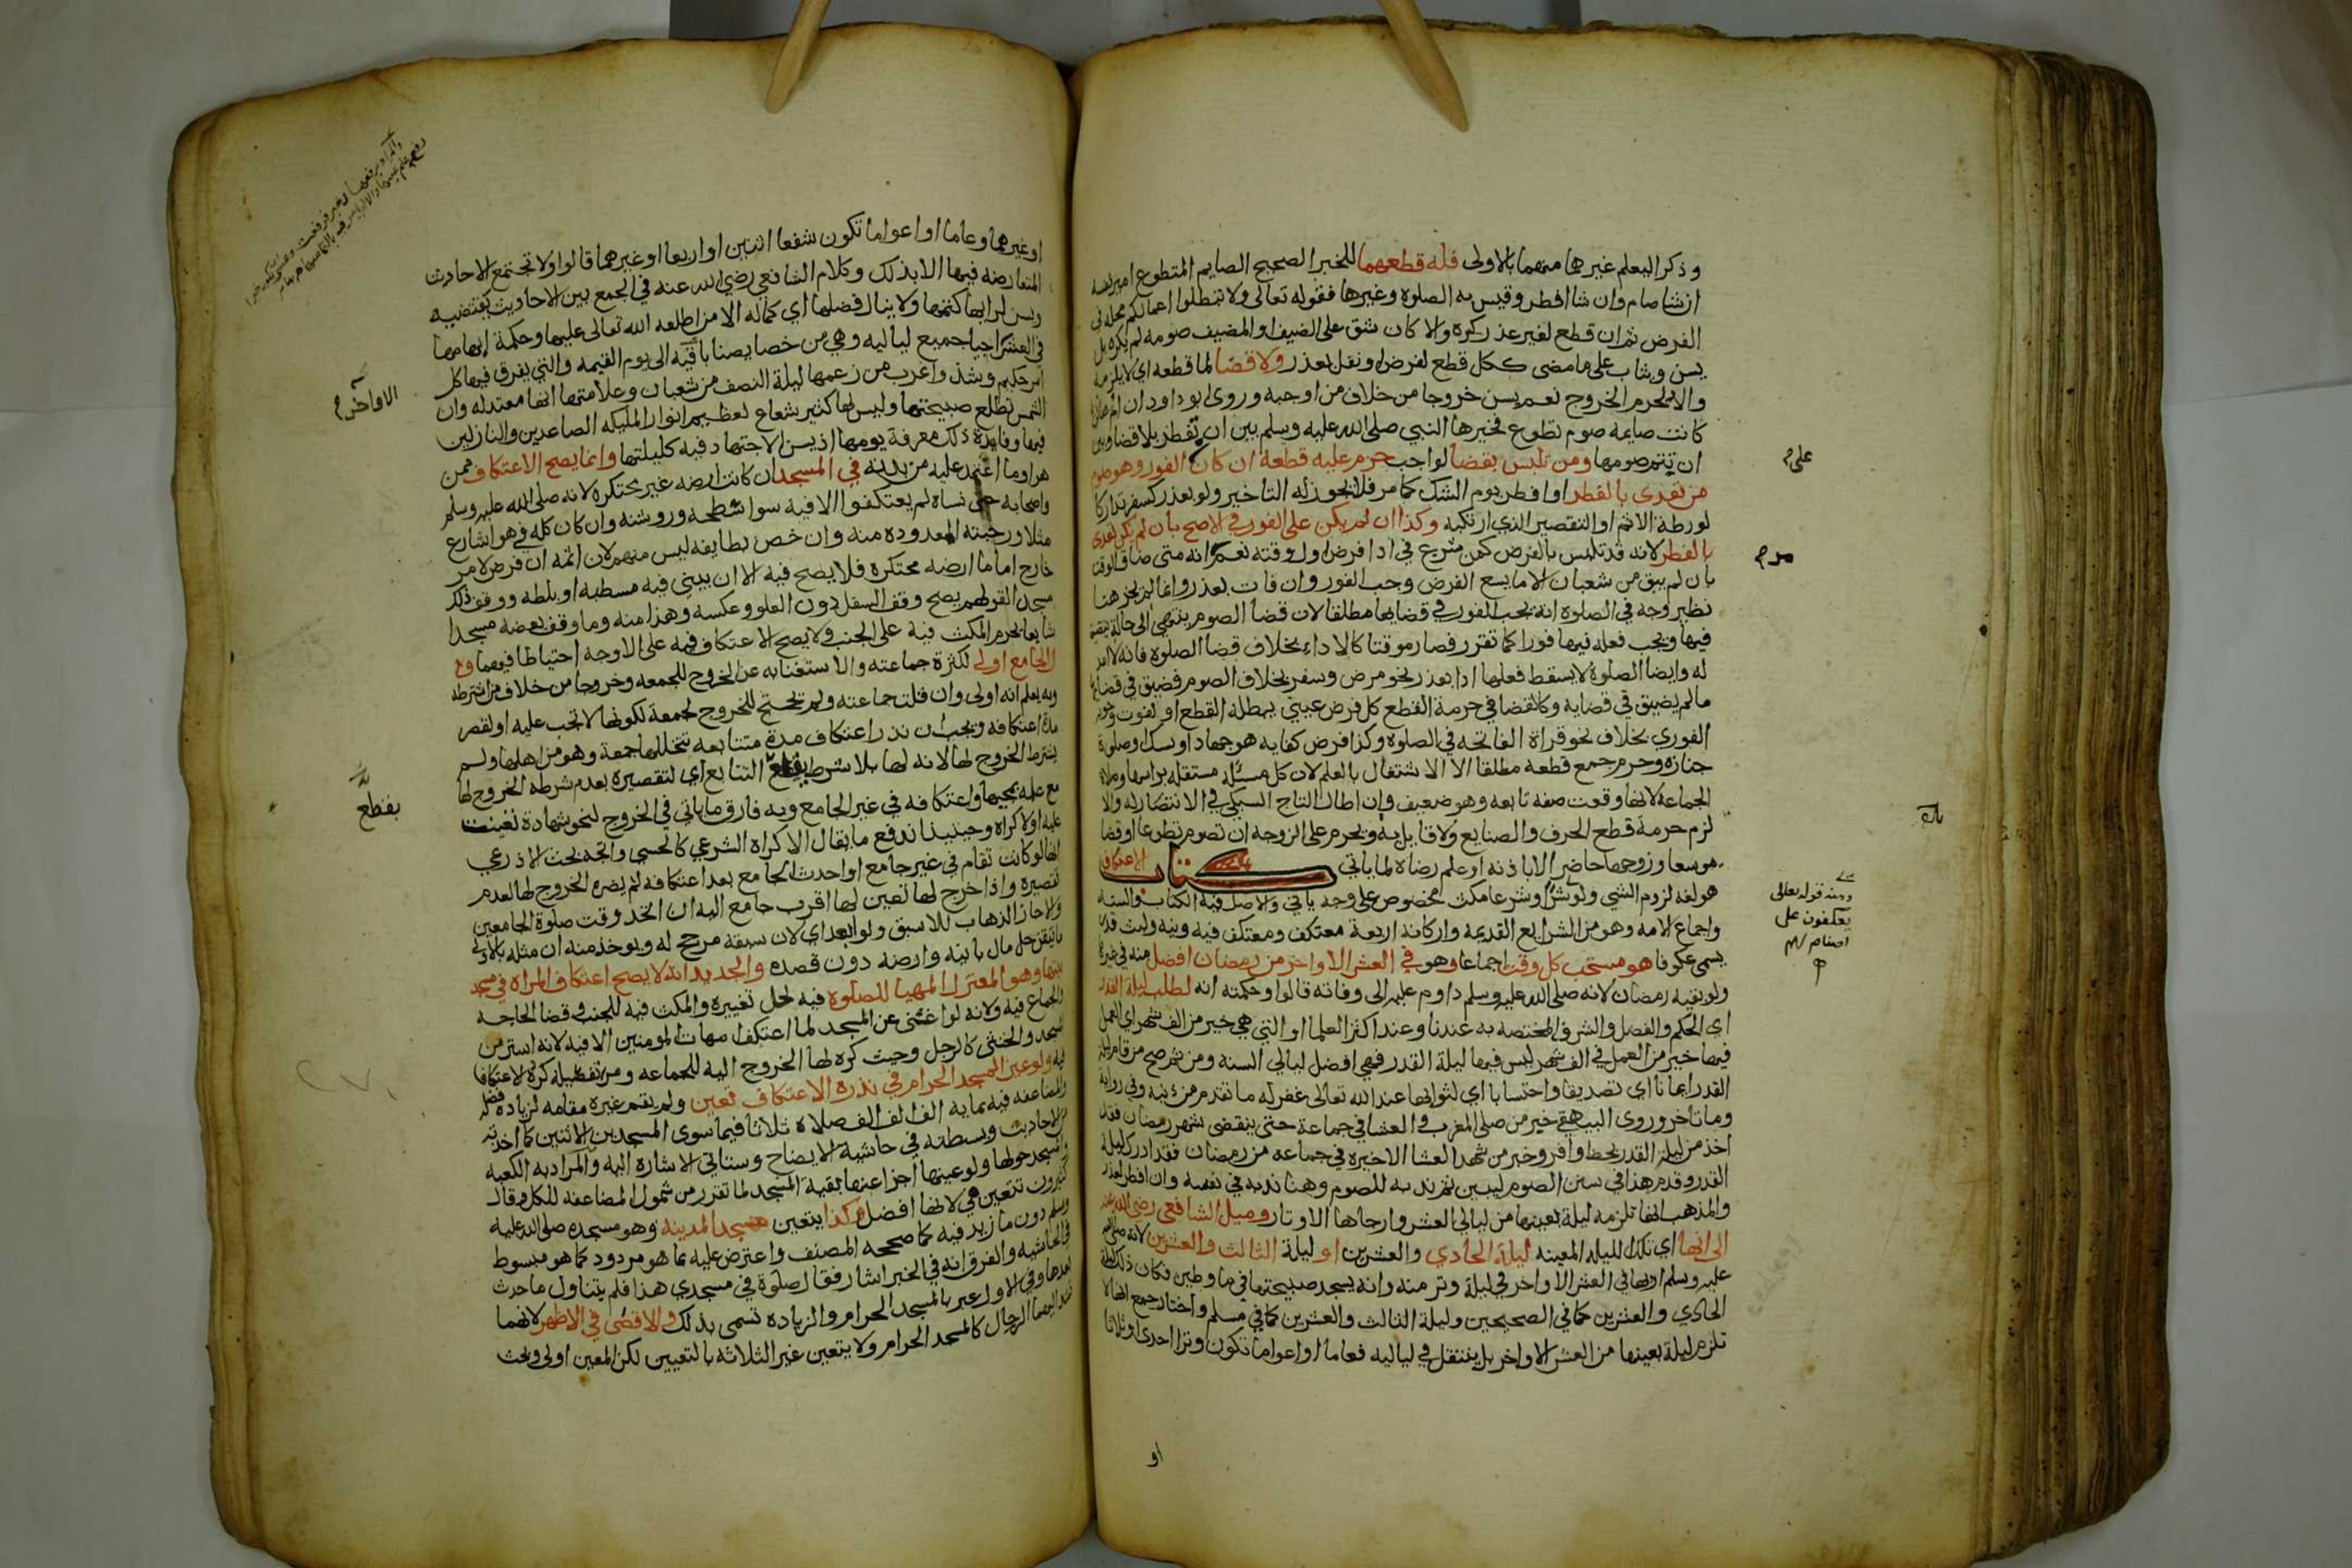 وذكرا ليعلم غيرها منهما بالاولى فله قطعهما للخبر الصحيح الصايم المتطوع امير نفسه
ان شا صام وان شا افطر وقيس به الصلوة وغيرها فقوله تعالى ولا تبطلوا اعمالكم محله في
الفرض ثم ان قطع لغير عذر كره والا كان شق على الضيف او المضيف صومه لم يكره بل
يسن ويثاب على ما مضى ككل قطع لفرض او نفل بعذر ولا قضا لما قطعه اي لا يلزمه
والا لحرم الخروج نعم يسن خروجا من خلاف من اوجبه وروى ابو داود ان ام هاني
كانت صايمة صوم تطوع فخيرها النبي صلى الله عليه وسلم بين ان تفطر بلا قضا وبين
ان تتم صومها ومن تلبس بقضا لواجب حرم عليه قطعه ان كان الفور وهو صوم
من تعدى بالفطر او افطر يوم الشك كما مر فلا يجوز له التاخير ولو بعذر كسفر تداركا
لورطة الاثم او التقصير الذي ارتكبه وكذا ان لم يكن على الفور في الاصح بان لم يكن تعدى
بالفطر لانه قد تلبس بالفرض كمن شرع في ادا فرض اول وقته نعم انه متى ضاق الوقت
بان لم يبق من شعبان الا ما يسع الفرض وجب الفور وان فات بعذر وانما لم يجز هنا
نظير وجه في الصلوة انه يجب الفور في قضايها مطلقا لان قضا الصوم ينتهي الى حالة يضيق
فيها ويجب فعله فيها فورا كما تقرر فصار موقتا كالاداء بخلاف قضا الصلوة فانه لا امد
له وايضا الصلوة لا يسقط فعلها ادا بعذر نحو مرض وسفر بخلاف الصوم فضيق في قضايها
ما لم يضيق في قضايه وكالقضا في حرمة القطع كل فرض عيني يبطله القطع او يفوت وجوبه
الفوري بخلاف نحو قراة الفاتحه في الصلوة وكذا فرض كفايه هو جهاد او نسك او صلوة
جنازه وحرم جمع قطعه مطلقا الا الاشتغال بالعلم لان كل مسئلة مستقله براسها وصلاة
الجماعة لانها وقعت صفه تابعه وهو ضعيف وان اطال التاج السبكي في الانتصار له والا
لزم حرمة قطع الحرف والصنايع ولا قايل به ويحرم على الزوجه ان تصوم تطوعا او قضا
موسعا وزوجها حاضر الا باذنه او علم رضاه لما ياتي كتاب الاعتكاف
هو لغة لزوم الشي ولو شرا وشرعا مكث مخصوص على وجه ياتي والاصل فيه الكتاب والسنه
واجماع الامه وهو من الشرايع القديمه واركانه اربعة معتكف ومعتكف فيه ونيه ولبث قدر
يسمى عكوفا هو مستحب كل وقت اجماعا وهو في العشر الاواخر من رمضان افضل منه في غيره
ولو بقيه رمضان لانه صلى الله عليه وسلم داوم عليه الى وفاته قالوا وحكمته انه لطلب ليلة القدر
اي الحكم والفصل والشرف المختصه به عندنا وعند اكثر العلما او التي هي خير من الف شهر اي العمل
فيها خير من العمل في الف شهر ليس فيها ليلة القدر فهي افضل ليالي السنه ومن ثم صح من قام ليلة
القدر ايمانا اي تصديقا واحتسابا اي لثوابها عند الله تعالى غفر له ما تقدم من ذنبه وفي رواية
وما تاخر وروى البيهقي خبر من صلى المغرب والعشا في جماعة حتى ينقضي شهر رمضان فقد
اخذ من ليلة القدر بحظ وافر وخبر من شهد العشا الاخيره في جماعه من رمضان فقد ادرك ليلة
القدر وقدم هذا في سنن الصوم ليبين ثم ندبه للصوم وهنا ندبه في نفسه وان افطر لعذر
والمذهب انها تلزمه ليلة بعينها من ليالي العشر وارجاها الاوتار وميل الشافعي رضي الله عنه
الى انها اي تلك الليله المعينه ليلة الحادي والعشرين او ليلة الثالث والعشرين لانه صلى الله
عليه وسلم اريها في العشر الاواخر في ليلة وتر منه وانه يسجد صبيحتها في ما وطين فكان ذلك ليلة
الحادي والعشرين كما في الصحيحين وليلة الثالث والعشرين كما في مسلم واختار جمع انها لا
تلزم ليلة بعينها من العشر الاواخر بل ينتقل في لياليه فعاما او اعواما تكون وترا احدى او ثلاثا
او
على م
مر م
ومنه قوله تعالى
يعكفون على
اصنام لهم
او غيرهما وعاما او اعواما تكون شفعا اثنين او اربعا او غيرهما قالوا ولا تجتمع الاحاديث
المتعارضه فيها الا بذلك وكلام الشافعي رضي الله عنه في الجمع بين الاحاديث يقتضيه
ويسن لرايها كتمها ولا ينال فضلها اي كماله الا من اطلعه الله تعالى عليها وحكمة ابهامها
في العشر احيا جميع لياليه وهي من خصايصنا باقيه الى يوم القيمه والتي يفرق فيها كل
امر حكيم وشذ واغرب من زعمها ليلة النصف من شعبان وعلامتها انها معتدله وان
الشمس تطلع صبيحتها وليس لها كثير شعاع لعظيم انوار المليكه الصاعدين والنازلين
فيها وفايدة ذلك معرفة يومها اذ يسن الاجتهاد فيه كليلتها وانما يصح الاعتكاف ممن
هو او ما اعتمد عليه من بدنه في المسجد ان كانت ارضه غير محتكره لانه صلى الله عليه وسلم
واصحابه حتى نساه لم يعتكفوا الا فيه سوا سطحه وروشنه وان كان كله في هوا شارع
مثلا ورحبته المعدوده منه وان خص بطايفه ليس منهم لان اثمه ان فرض لامر
خارج اما ما ارضه محتكره فلا يصح فيه الا ان يبني فيه مسطبه او بلطه ووقف ذلك
مسجدا لقولهم يصح وقف السفل دون العلو وعكسه وهذا منه وما وقف بعضه مسجدا
شايعا يحرم المكث فيه على الجنب ولا يصح الاعتكاف فيه على الاوجه احتياطا فيهما و
الجامع اولى لكثرة جماعته والاستغنا به عن الخروج للجمعه وخروجا من خلاف من اشترطه
وبه يعلم انه اولى وان قلت جماعته ولم تحتج للخروج لجمعة لكونها لا تجب عليه او لقصر
مدة اعتكافه ويجب ان نذر اعتكاف مدة متتابعه تتخللها جمعة وهو من اهلها ولم
يشترط الخروج لها لانه لها بلا شرط يقطع التتابع اي لتقصيره بعدم شرطه الخروج لها
مع علمه بمجيها واعتكافه في غير الجامع وبه فارق ما ياتي في الخروج لنحو شهادة تعينت
عليه او لاكراه وحينيذ اندفع ما يقال الاكراه الشرعي كالحسي واتجه بحث الاذرعي
انها لو كانت تقام في غير جامع او احدث الجامع بعد اعتكافه لم يضره الخروج لها لعدم
تقصيره واذا خرج لها تعين لها اقرب جامع اليه ان اتحد وقت صلوة الجامعين
والا جاز الذهاب للاسبق ولو ابعد اي لان سبقه مرجح له ويوخذ منه ان مثله بالاولى
ما تيقن حل مال بانيه وارضه دون قصده والجديد انه لا يصح اعتكاف المراة في مسجد
بيتها وهو المعتزل المهيا للصلوة فيه لحل تغييره والمكث فيه للجنب وقضا الحاجه
والجماع فيه ولانه لو اغنى عن المسجد لما اعتكف امهات المومنين الا فيه لانه استر من
المسجد والخنثى كالرجل وحيث كره لها الخروج اليه للجماعه ومن ثم كره لها الاعتكاف
فيه ولو عين المسجد الحرام في نذره الاعتكاف تعين ولم يقم غيره مقامه لزيادة فضله
والمضاعفه فيه بماية الف الف الف صلاة ثلاثا فيما سوى المسجدين الاتيين كما اخذته
من الاحاديث وبسطته في حاشية الايضاح وستاتي الاشارة اليه والمراد به الكعبه
والمسجد حولها ولو عينها اجزا عنها بقية المسجد لما تقرر من شمول المضاعفه للكل وقال
كثيرون تتعين هي لانها افضل وكذا يتعين مسجد المدينه وهو مسجده صلى الله عليه
وسلم دون ما زيد فيه كما صححه المصنف واعترض عليه بما هو مردود كما هو مبسوط
في الحاشيه والفرق انه في الخبر اشار فقال صلوة في مسجدي هذا فلم يتناول ما حدث
بعدها وفي الاول عبر بالمسجد الحرام والزياده تسمى بذلك والاقصى في الاظهر لانهما
تشد اليهما الرحال كالمسجد الحرام ولا يتعين غير الثلاثه بالتعيين لكن المعين اولى وبحث
الاواخر م
يقطع